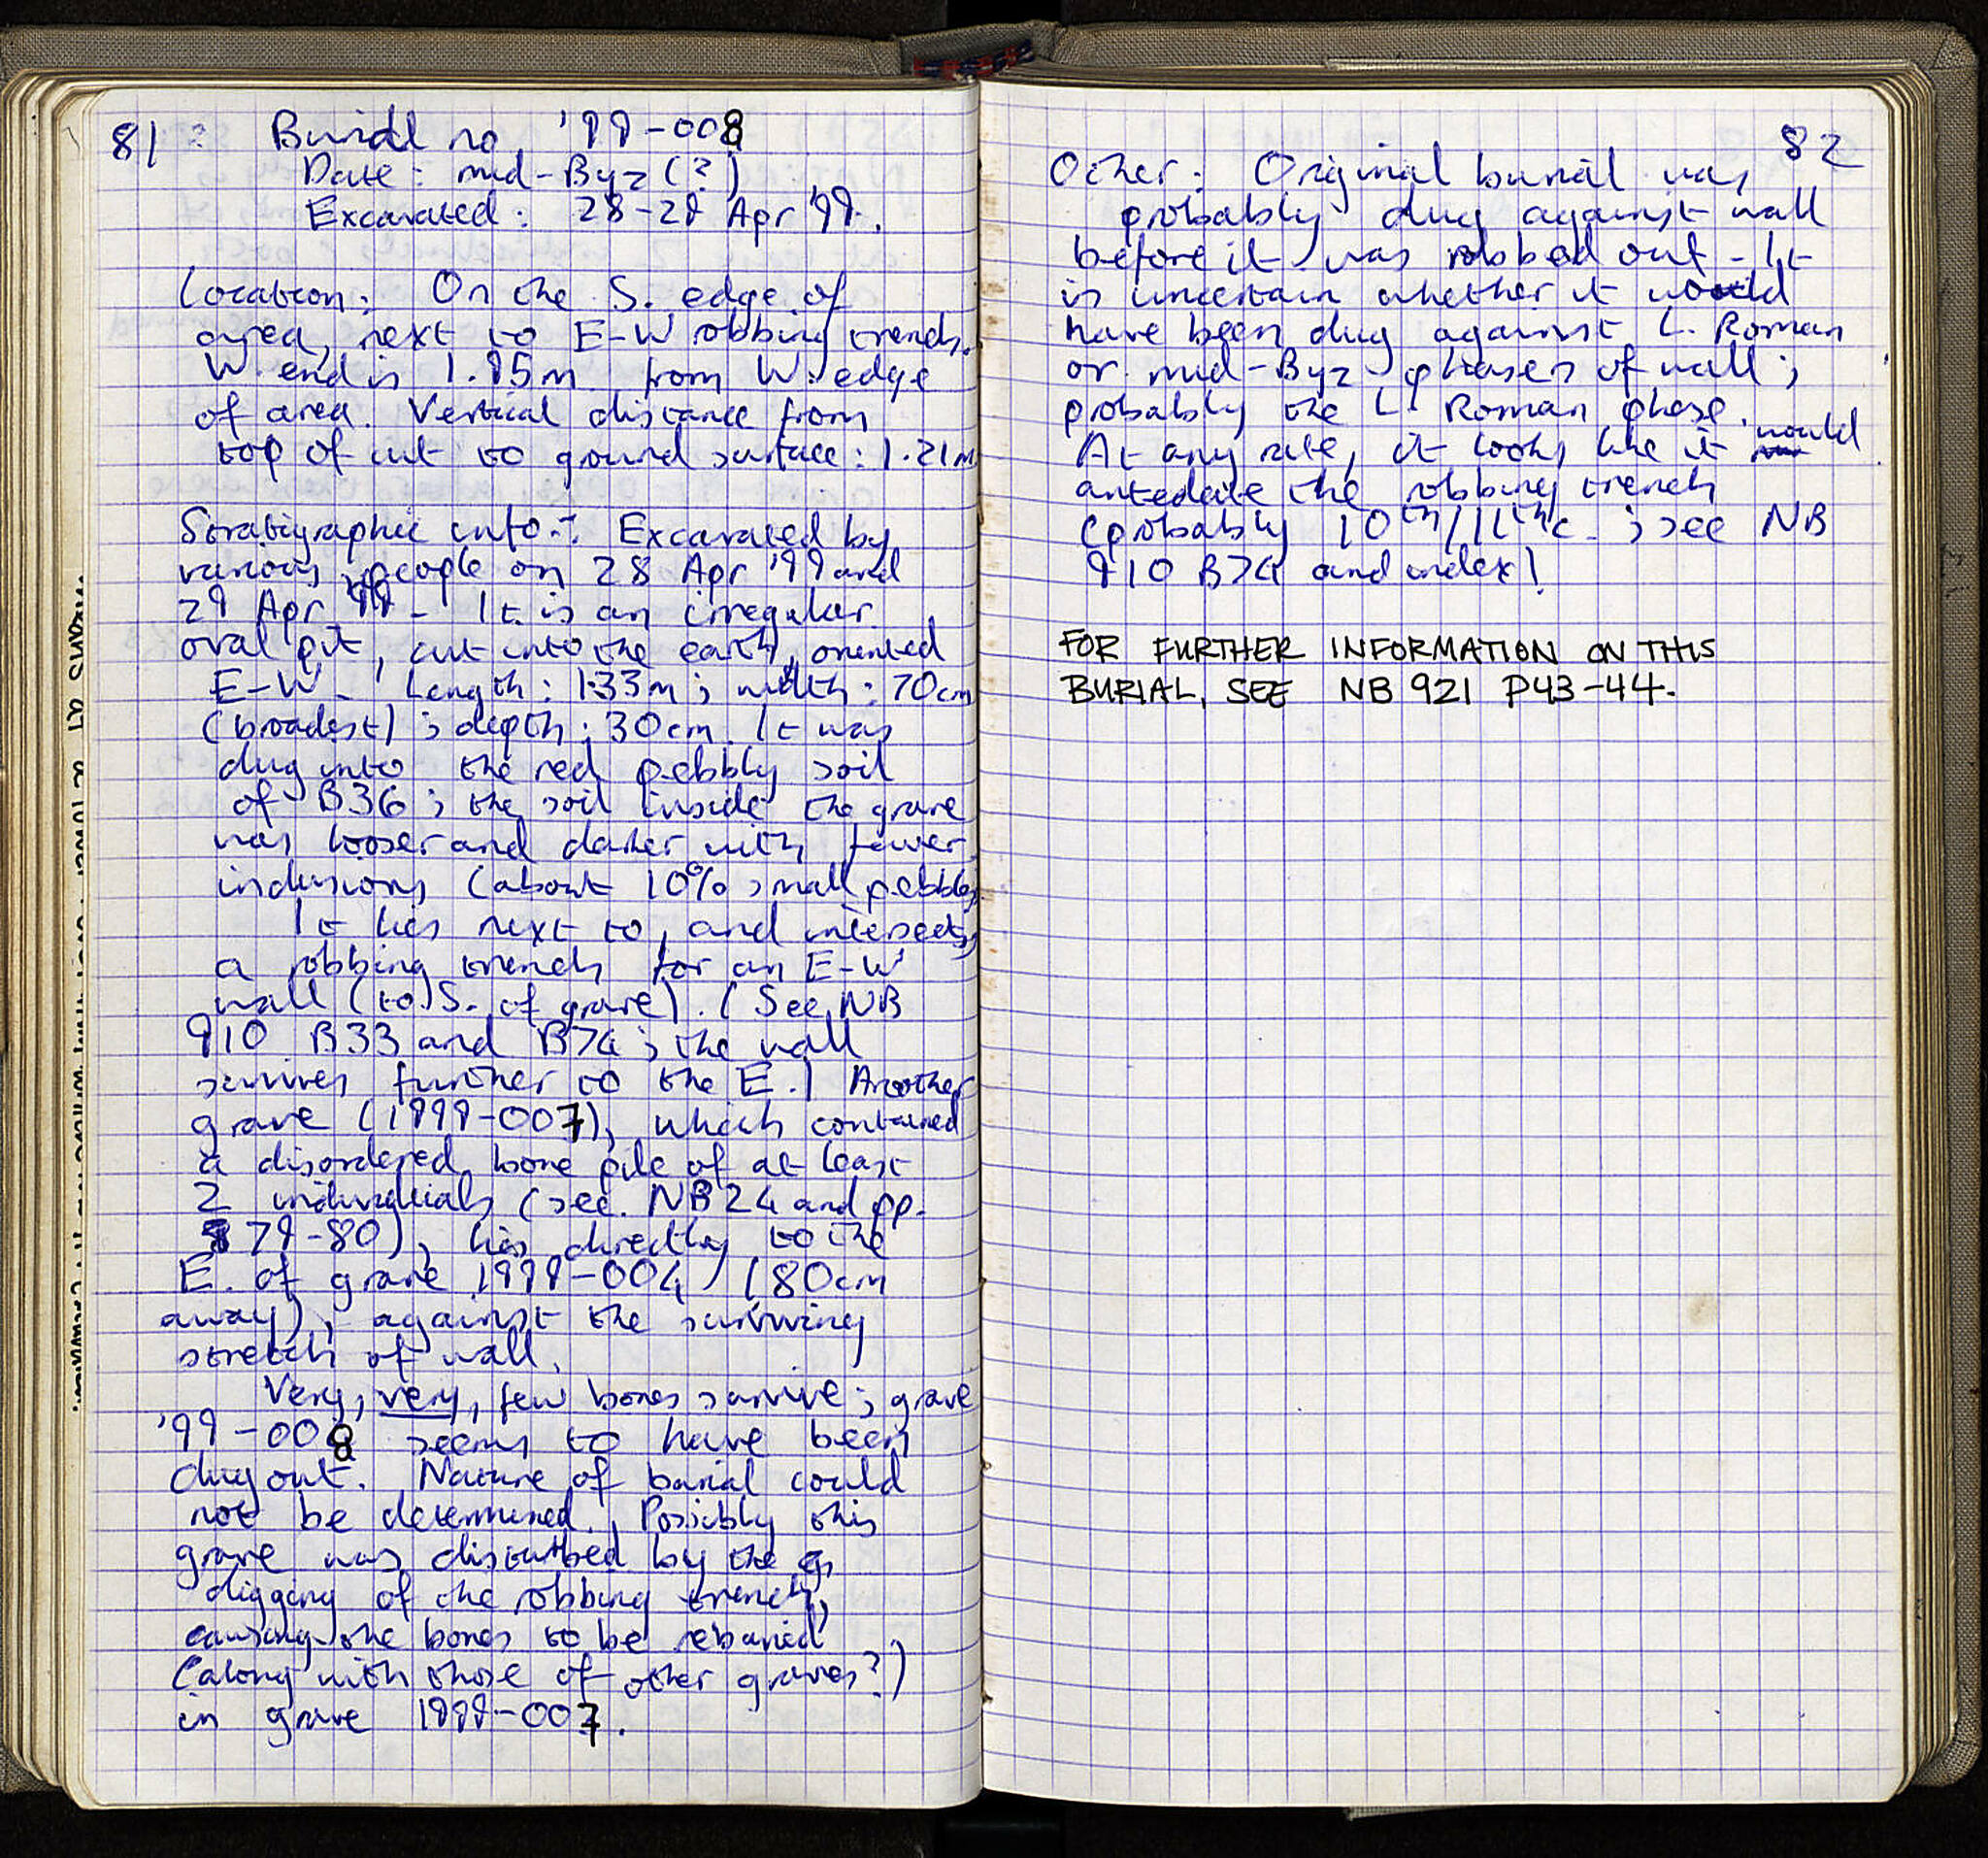 81
Burial no. '99-008
Date: mid-Byz (?)
Excavated: 28-29 Apr '99.
Location: On the S. edge of
area, next to E-W robbing trench.
W. end is 1.95m from W. edge
of area. Vertical distance from
top of cut to ground surface: 1.21m
Stratigraphic info.: Excavated by
various people on 28 Apr '99 and
29 Apr '99. It is an irregular
oval pit, cut into the earth, oriented
E-W. Length: 1.33m; width: 70cm
(broadest); depth: 30cm. It was
dug into the red pebbly soil
of B36; the soil inside the grave
was looser and darker with fewer
inclusions (about 10% small pebbles
It lies next to, and intersects,
a robbing trench for an E-W
wall (to S. of grave). (See NB
910 B33 and B74; the wall
survives further to the E.) Another
grave (1999-007), which contained
a disordered bone pile of at least
2 individuals (see NB 24 and pp.
79-80), lies directly to the
E. of grave 1999-004 (80cm
away), against the surviving
stretch of wall.
Very, very, few bones survive; grave
'99-008 seems to have been
dug out. Nature of burial could
not be determined. Possibly this
grave was disturbed by the
digging of the robbing trench,
causing the bones to be reburied
(along with those of other graves?)
in grave 1999-007.
82
Other: Original burial was
probably dug against wall
before it was robbed out - It
is uncertain whether it would
have been dug against L. Roman
or mid-Byz phases of wall;
probably the L. Roman phase.
At any rate, it looks like it would
antedate the robbing trench
(probably 10th/11th c.; see NB
910 B74 and index).
FOR FURTHER INFORMATION ON THIS
BURIAL, SEE NB 921 P43-44.